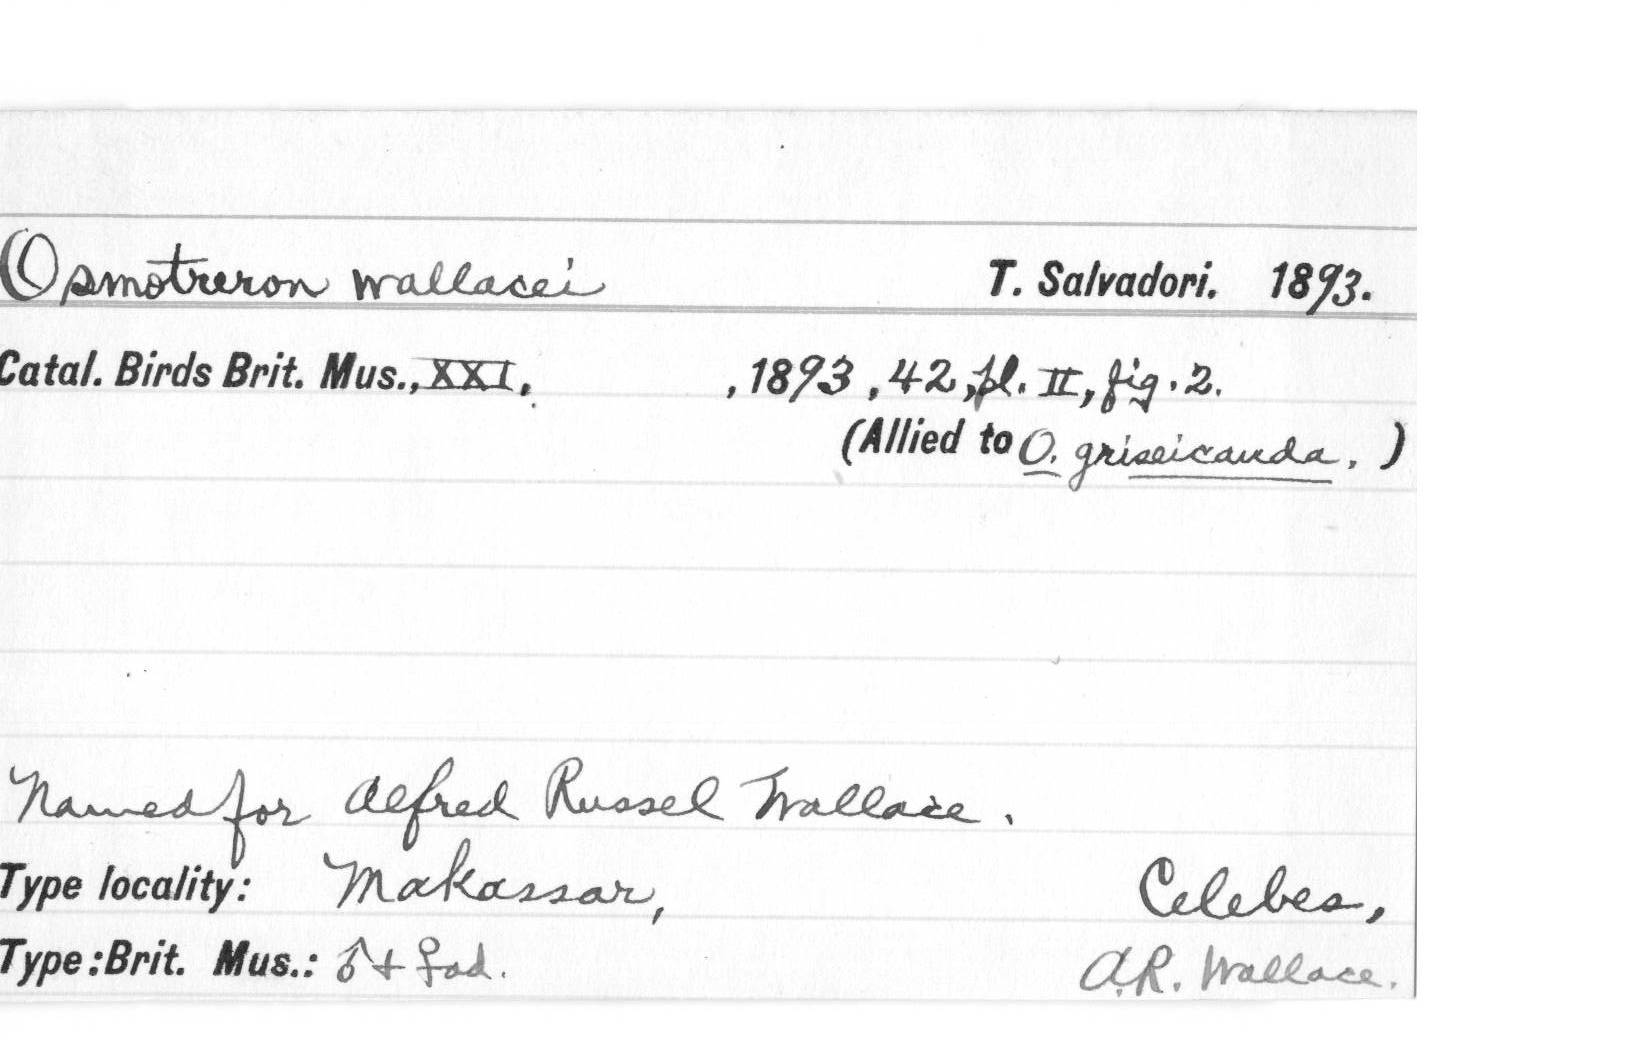 Osmotreron wallacei T. Salvadori. 1893.
Catal. Birds Brit. Mus., XXI, , 1893 , 42, pl. II, fig. 2.
(Allied to O. griseicauda. )
Named for Alfred Russel Wallace.
Type locality: Makassar, Celebes,
Type: Brit. Mus.: ♂ + ♀ ad. A.R. Wallace.